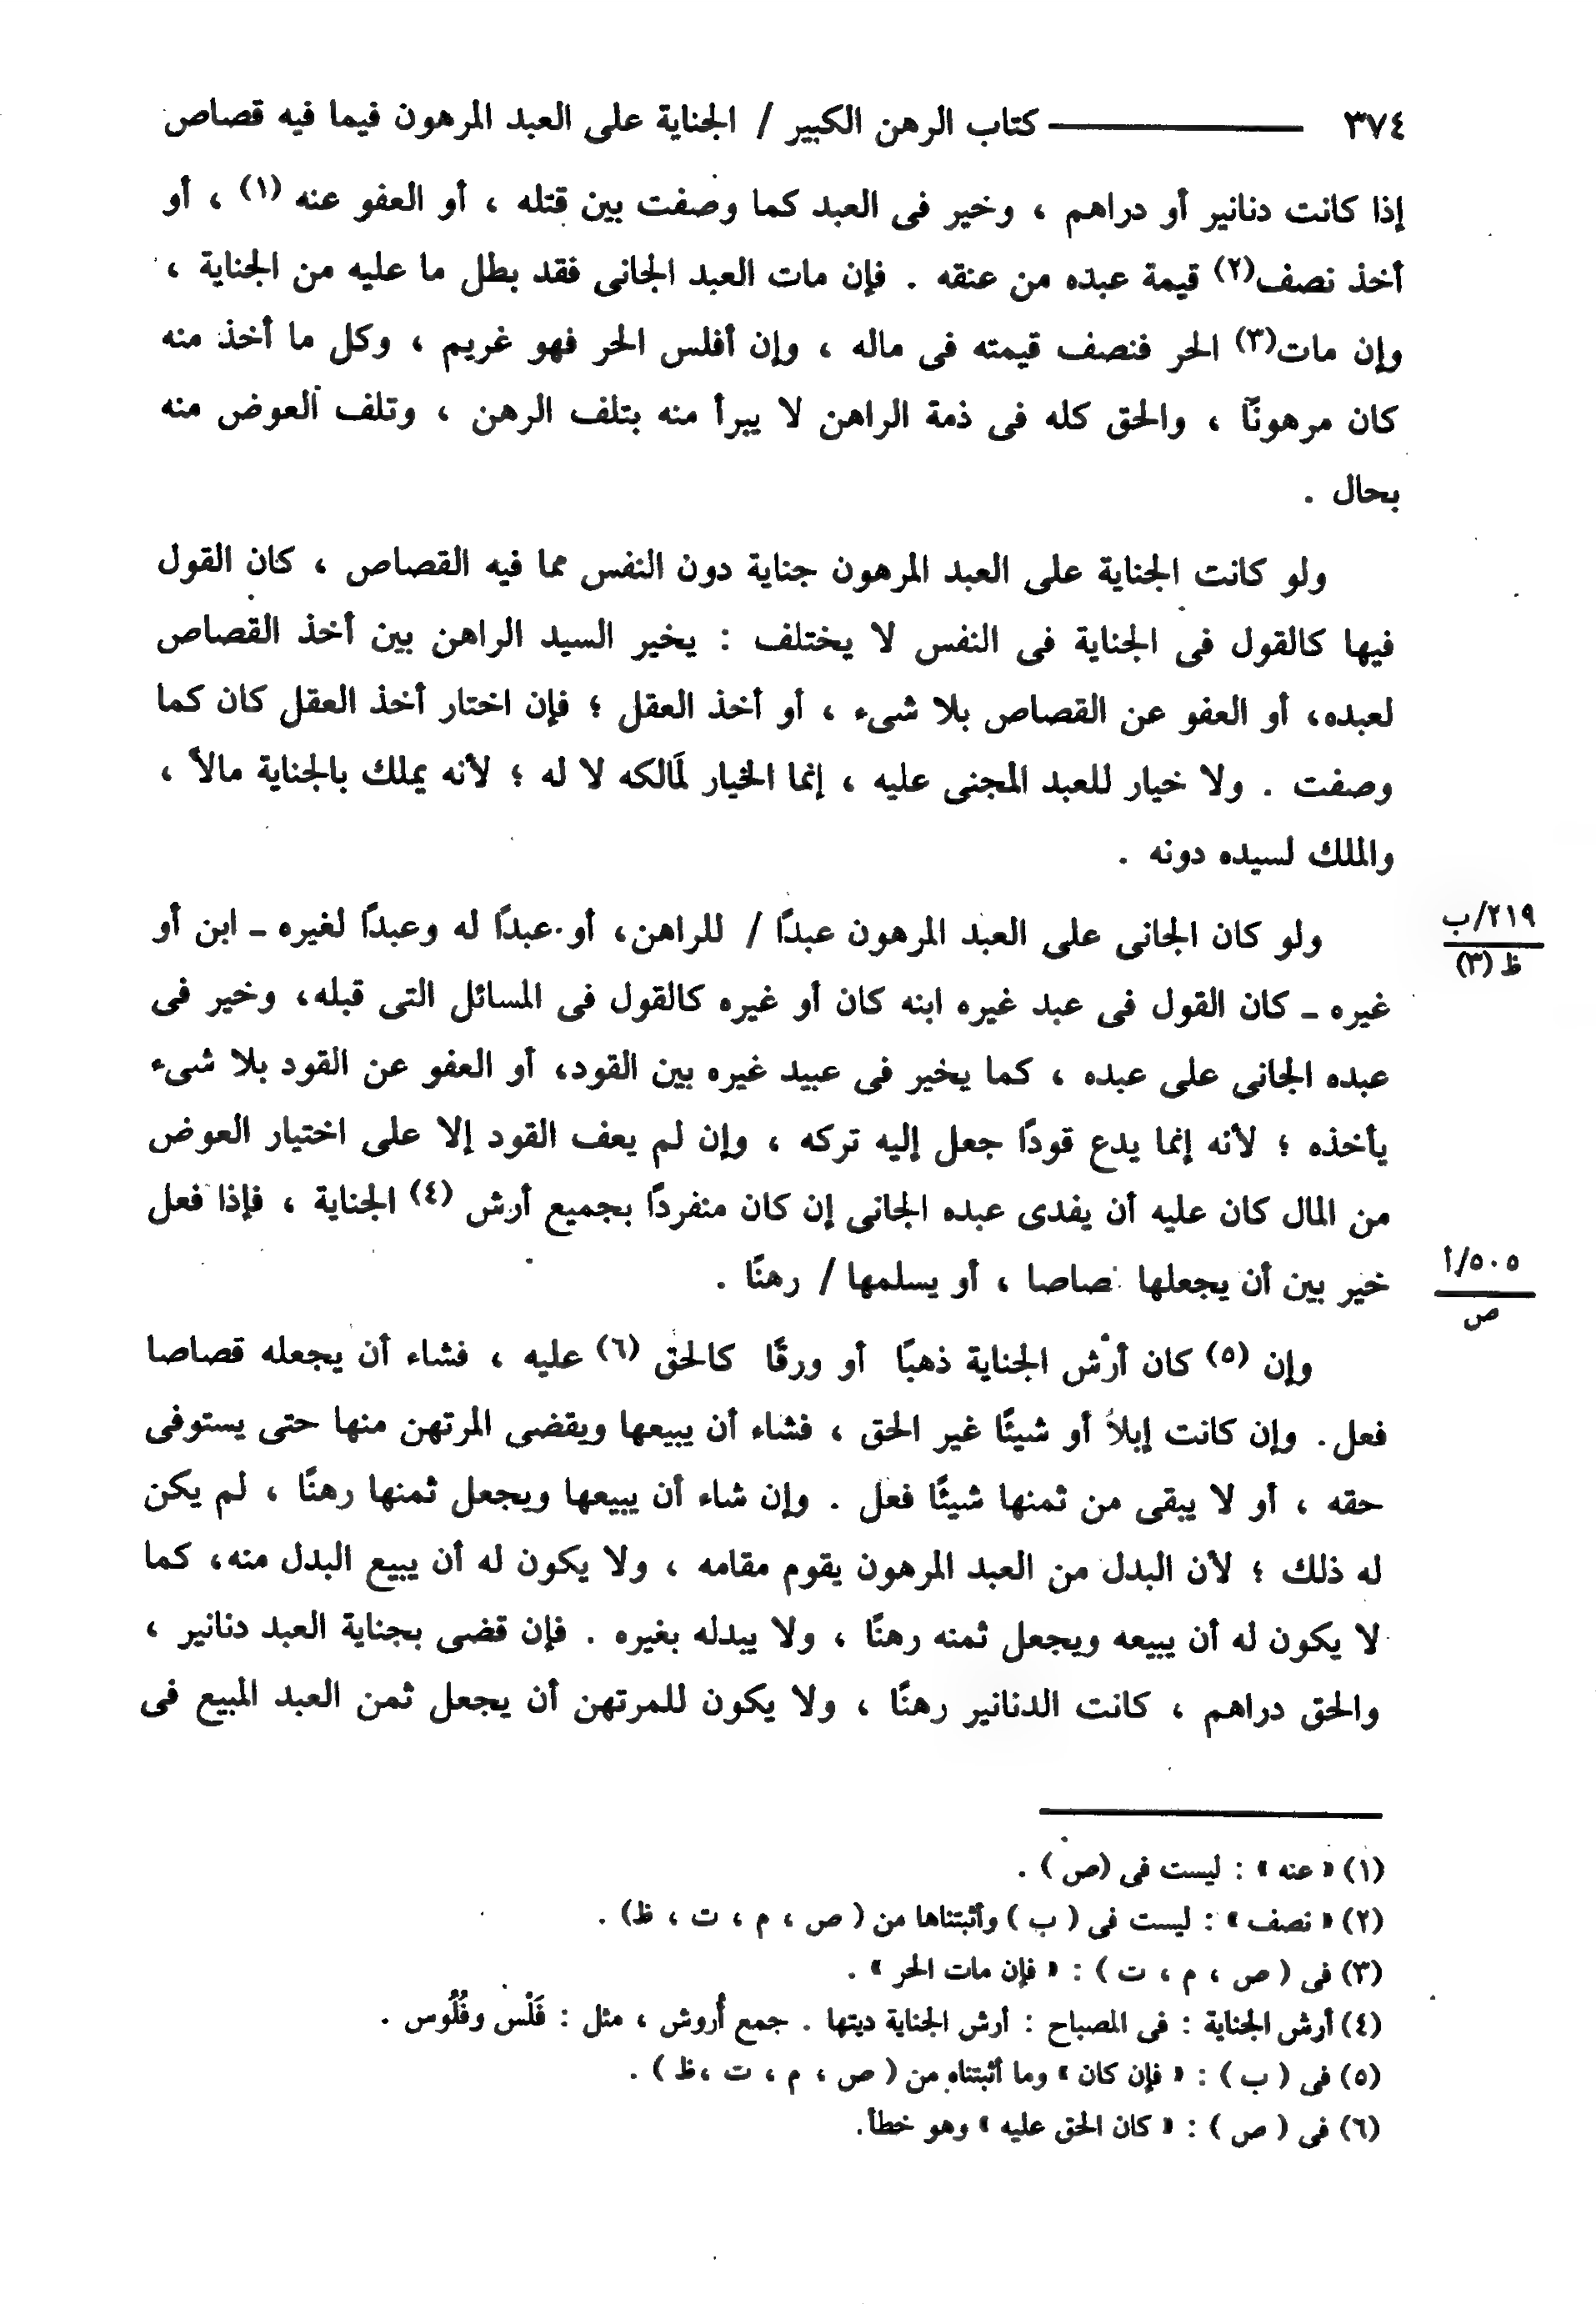 ٣٧٤ ــــــــ كتاب الرهن الكبير / الجناية على العبد المرهون فيما فيه قصاص
إذا كانت دنانير أو دراهم ، وخير فى العبد كما وصفت بين قتله ، أو العفو عنه (١) ، أو
أخذ نصف(٢) قيمة عبده من عنقه . فإن مات العبد الجانى فقد بطل ما عليه من الجناية ،
وإن مات(٣) الحر فنصف قيمته فى ماله ، وإن أفلس الحر فهو غريم ، وكل ما أخذ منه
كان مرهونًا ، والحق كله فى ذمة الراهن لا يبرأ منه بتلف الرهن ، وتلف العوض منه
بحال .
ولو كانت الجناية على العبد المرهون جناية دون النفس مما فيه القصاص ، كان القول
فيها كالقول فى الجناية فى النفس لا يختلف : يخير السيد الراهن بين أخذ القصاص
لعبده، أو العفو عن القصاص بلا شىء ، أو أخذ العقل ؛ فإن اختار أخذ العقل كان كما
وصفت . ولا خيار للعبد المجنى عليه ، إنما الخيار لمَالكه لا له ؛ لأنه يملك بالجناية مالاً ،
والملك لسيده دونه .
ولو كان الجانى على العبد المرهون عبدًا / للراهن، أو عبدًا له وعبدًا لغيره ـ ابن أو
٢١٩/ب
ظ (٣)
غيره ـ كان القول فى عبد غيره ابنه كان أو غيره كالقول فى المسائل التى قبله، وخير فى
عبده الجانى على عبده ، كما يخير فى عبيد غيره بين القود، أو العفو عن القود بلا شىء
يأخذه ؛ لأنه إنما يدع قودًا جعل إليه تركه ، وإن لم يعف القود إلا على اختيار العوض
من المال كان عليه أن يفدى عبده الجانى إن كان منفردًا بجميع أرش (٤) الجناية ، فإذا فعل
خير بين أن يجعلها صاصا ، أو يسلمها / رهنًا .
٥٠٥/أ
ص
وإن (٥) كان أرش الجناية ذهبًا أو ورقًا كالحق (٦) عليه ، فشاء أن يجعله قصاصا
فعل . وإن كانت إبلاً أو شيئًا غير الحق ، فشاء أن يبيعها ويقضى المرتهن منها حتى يستوفى
حقه ، أو لا يبقى من ثمنها شيئًا فعل . وإن شاء أن يبيعها ويجعل ثمنها رهنًا ، لم يكن
له ذلك ؛ لأن البدل من العبد المرهون يقوم مقامه ، ولا يكون له أن يبيع البدل منه، كما
لا يكون له أن يبيعه ويجعل ثمنه رهنًا ، ولا يبدله بغيره . فإن قضى بجناية العبد دنانير ،
والحق دراهم ، كانت الدنانير رهنًا ، ولا يكون للمرتهن أن يجعل ثمن العبد المبيع فى
(١) « عنه » : ليست فى (ص ) .
(٢) « نصف » : ليست فى ( ب ) وأثبتناها من ( ص ، م ، ت ، ظ) .
(٣) فى ( ص ، م ، ت ) : « فإن مات الحر » .
(٤) أرش الجناية : فى المصباح : أرش الجناية ديتها . جمع أُروش ، مثل : فَلْس وفُلُوس .
(٥) فى ( ب ) : « فإن كان » وما أثبتناه من ( ص ، م ، ت ،ظ ) .
(٦) فى ( ص ) : « كان الحق عليه » وهو خطأ.